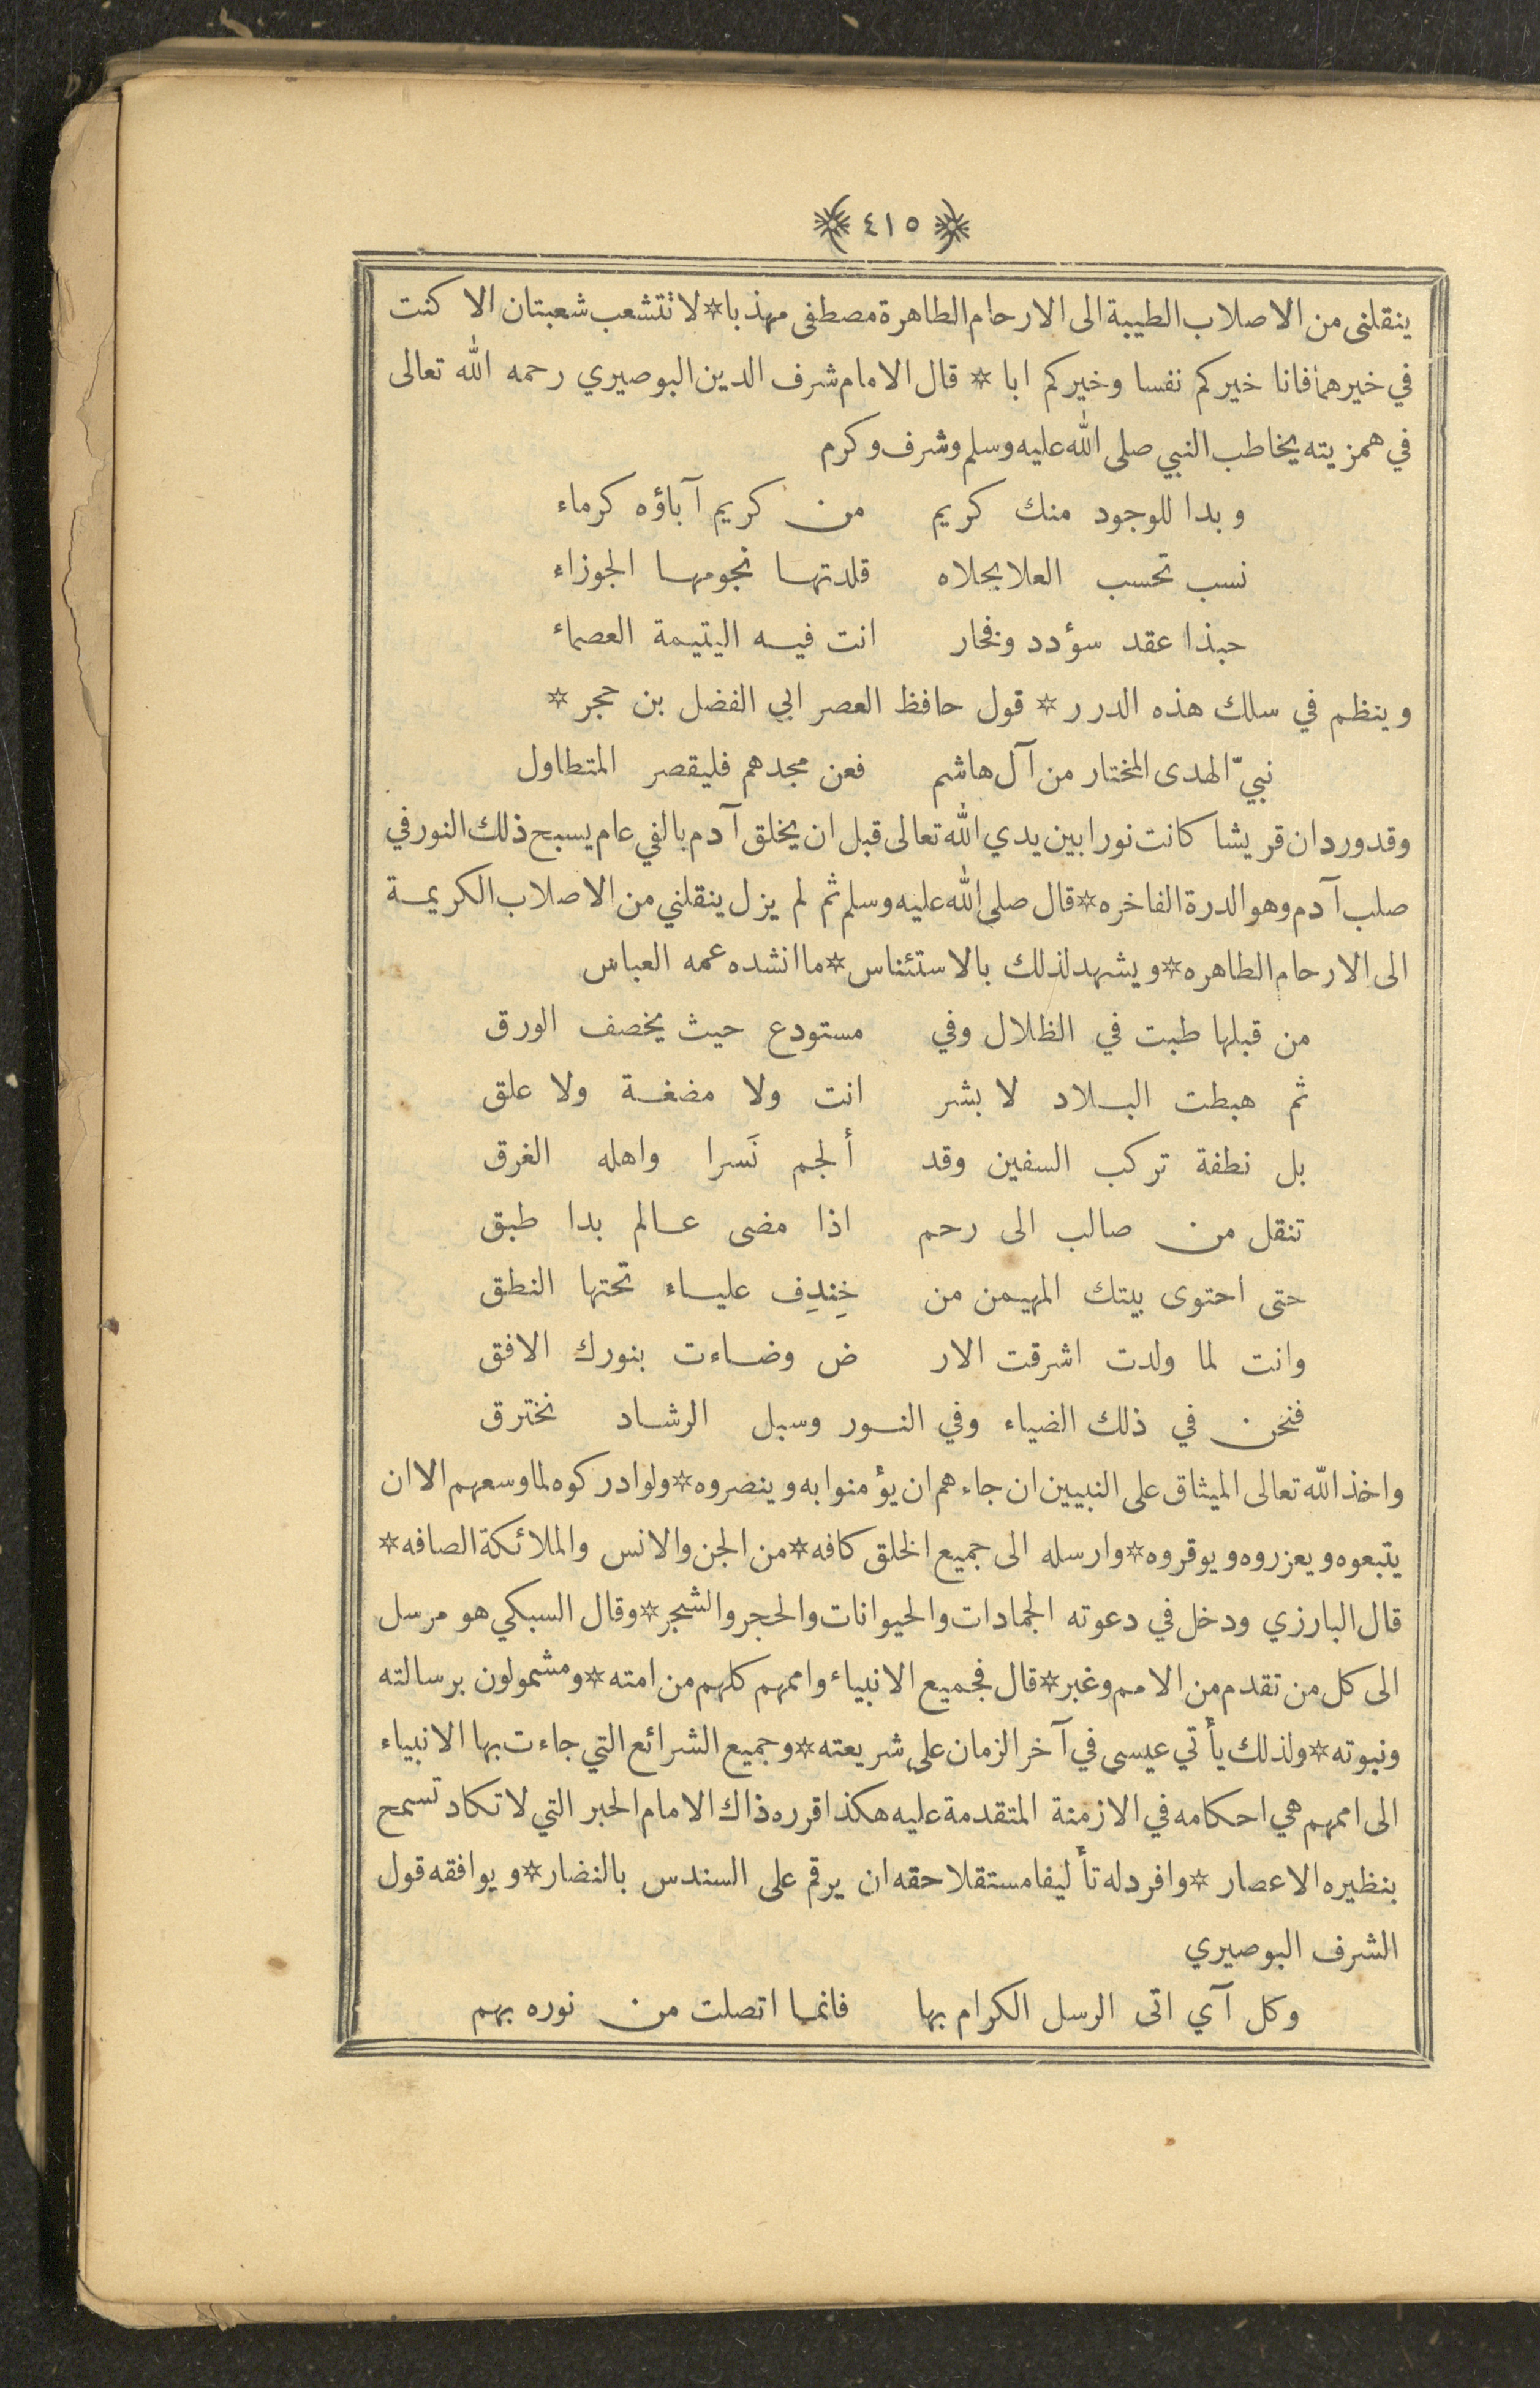 ﴿ ٤١٥ ﴾
ينقلنى من الاصلاب الطيبة الى الارحام الطاهرة مصطفى مهذبا * لا تتشعب شعبتان الا كنت
في خيرهما فانا خيركم نفسا وخيركم ابا * قال الامام شرف الدين البوصيري رحمه الله تعالى
في همزيته يخاطب النبي صلى الله عليه وسلم وشرف وكرم
وبدا للوجود منك كريم من كريم آباؤه كرماء
نسب تحسب العلا بحلاه قلدتها نجومها الجوزاء
حبذا عقد سؤدد وفخار انت فيه اليتيمة العصماء
وينظم في سلك هذه الدرر * قول حافظ العصر ابي الفضل بن حجر *
نبيّ الهدى المختار من آل هاشم فعن مجدهم فليقصر المتطاول
وقد ورد ان قريشا كانت نورا بين يدي الله تعالى قبل ان يخلق آدم بالفي عام يسبح ذلك النور في
صلب آدم وهو الدرة الفاخره * قال صلى الله عليه وسلم ثم لم يزل ينقلني من الاصلاب الكريمة
الى الارحام الطاهره * ويشهد لذلك بالاستئناس * ما انشده عمه العباس
من قبلها طبت في الظلال وفي مستودع حيث يخصف الورق
ثم هبطت البلاد لا بشر انت ولا مضغة ولا علق
بل نطفة تركب السفين وقد ألجم نَسرا واهله الغرق
تنقل من صالب الى رحم اذا مضى عالم بدا طبق
حتى احتوى بيتك المهيمن من خِندِف علياء تحتها النطق
وانت لما ولدت اشرقت الار ض وضاءت بنورك الافق
فنحن في ذلك الضياء وفي النور وسبل الرشاد نخترق
واخذ الله تعالى الميثاق على النبيين ان جاءهم ان يؤمنوا به وينصروه * ولو ادركوه لما وسعهم الا ان
يتبعوه ويعزروه ويوقروه * وارسله الى جميع الخلق كافه * من الجن والانس والملائكة الصافه *
قال البارزي ودخل في دعوته الجمادات والحيوانات والحجر والشجر * وقال السبكي هو مرسل
الى كل من تقدم من الامم وغبر * قال فجميع الانبياء واممهم كلهم من امته * ومشمولون برسالته
ونبوته * ولذلك يأتي عيسى في آخر الزمان على شريعته * وجميع الشرائع التي جاءت بها الانبياء
الى اممهم هي احكامه في الازمنة المتقدمة عليه هكذا قرره ذاك الامام الحبر التي لا تكاد تسمح
بنظيره الاعصار * وافرد له تأليفا مستقلا حقه ان يرقم على السندس بالنضار * ويوافقه قول
الشرف البوصيري
وكل آي اتى الرسل الكرام بها فانما اتصلت من نوره بهم